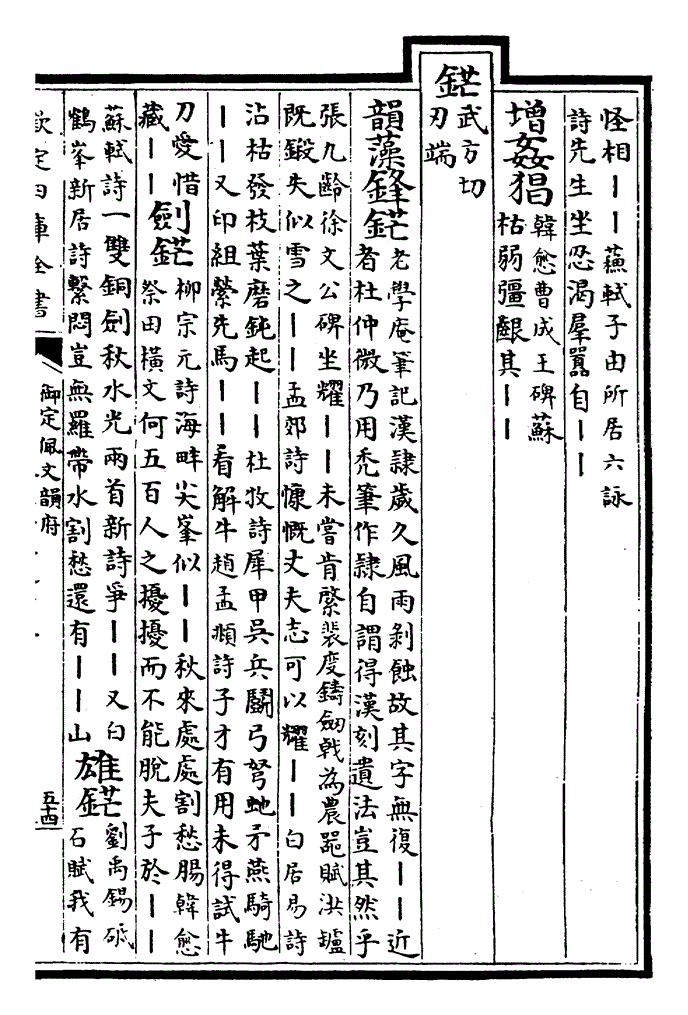 怪相丨丨蘓軾子由所居六詠
詩先生坐忍渴羣囂自丨丨
增姦猖韓愈曹成王碑蘇
枯弱彊齦其丨丨
鋩武方切
刃端
韻藻鋒鋩老學庵筆記漢隷歲久風雨剥蝕故其字無復丨丨近
者杜仲微乃用禿筆作隷自謂得漢刻遺法豈其然乎
張九齡徐文公碑坐耀丨丨未嘗肯綮裴度鑄劒戟為農噐賦洪罏
既鍛失似雪之丨丨孟郊詩慷慨丈夫志可以耀丨丨白居易詩
沾枯發枝葉磨鈍起丨丨杜牧詩犀甲吳兵鬬弓弩虵矛燕騎馳
丨丨又印組縈先馬丨丨看解牛趙孟頫詩子才有用未得試牛
刀愛惜藏丨丨劍鋩柳宗元詩海畔尖峯似丨丨秋來處處割愁腸韓愈
祭田横文何五百人之擾擾而不能脫夫子於丨丨
蘇軾詩一雙銅劍秋水光兩首新詩爭丨丨又白
鶴峯新居詩繫悶豈無羅帶水割愁還有丨丨山雄鋩劉禹錫砥
石賦我有
欽定四庫全書
御定佩文韻府
五十四